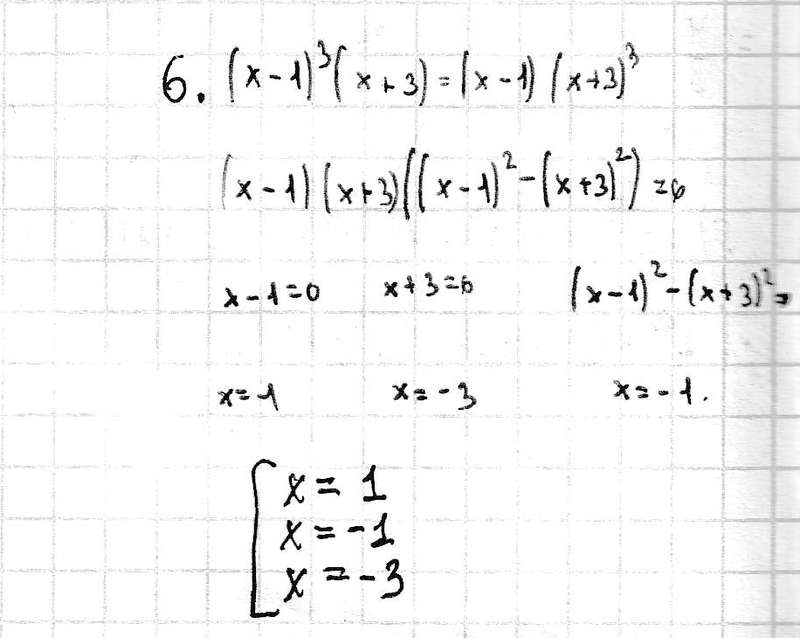 6. (x-1)³(x+3)=(x-1)(x+3)³
(x-1)(x+3)((x-1)²-(x+3)²)=0
x-1=0 x+3=0 (x-1)²-(x+3)²=
x=1 x=-3 x=-1.
x=1
x=-1
x=-3